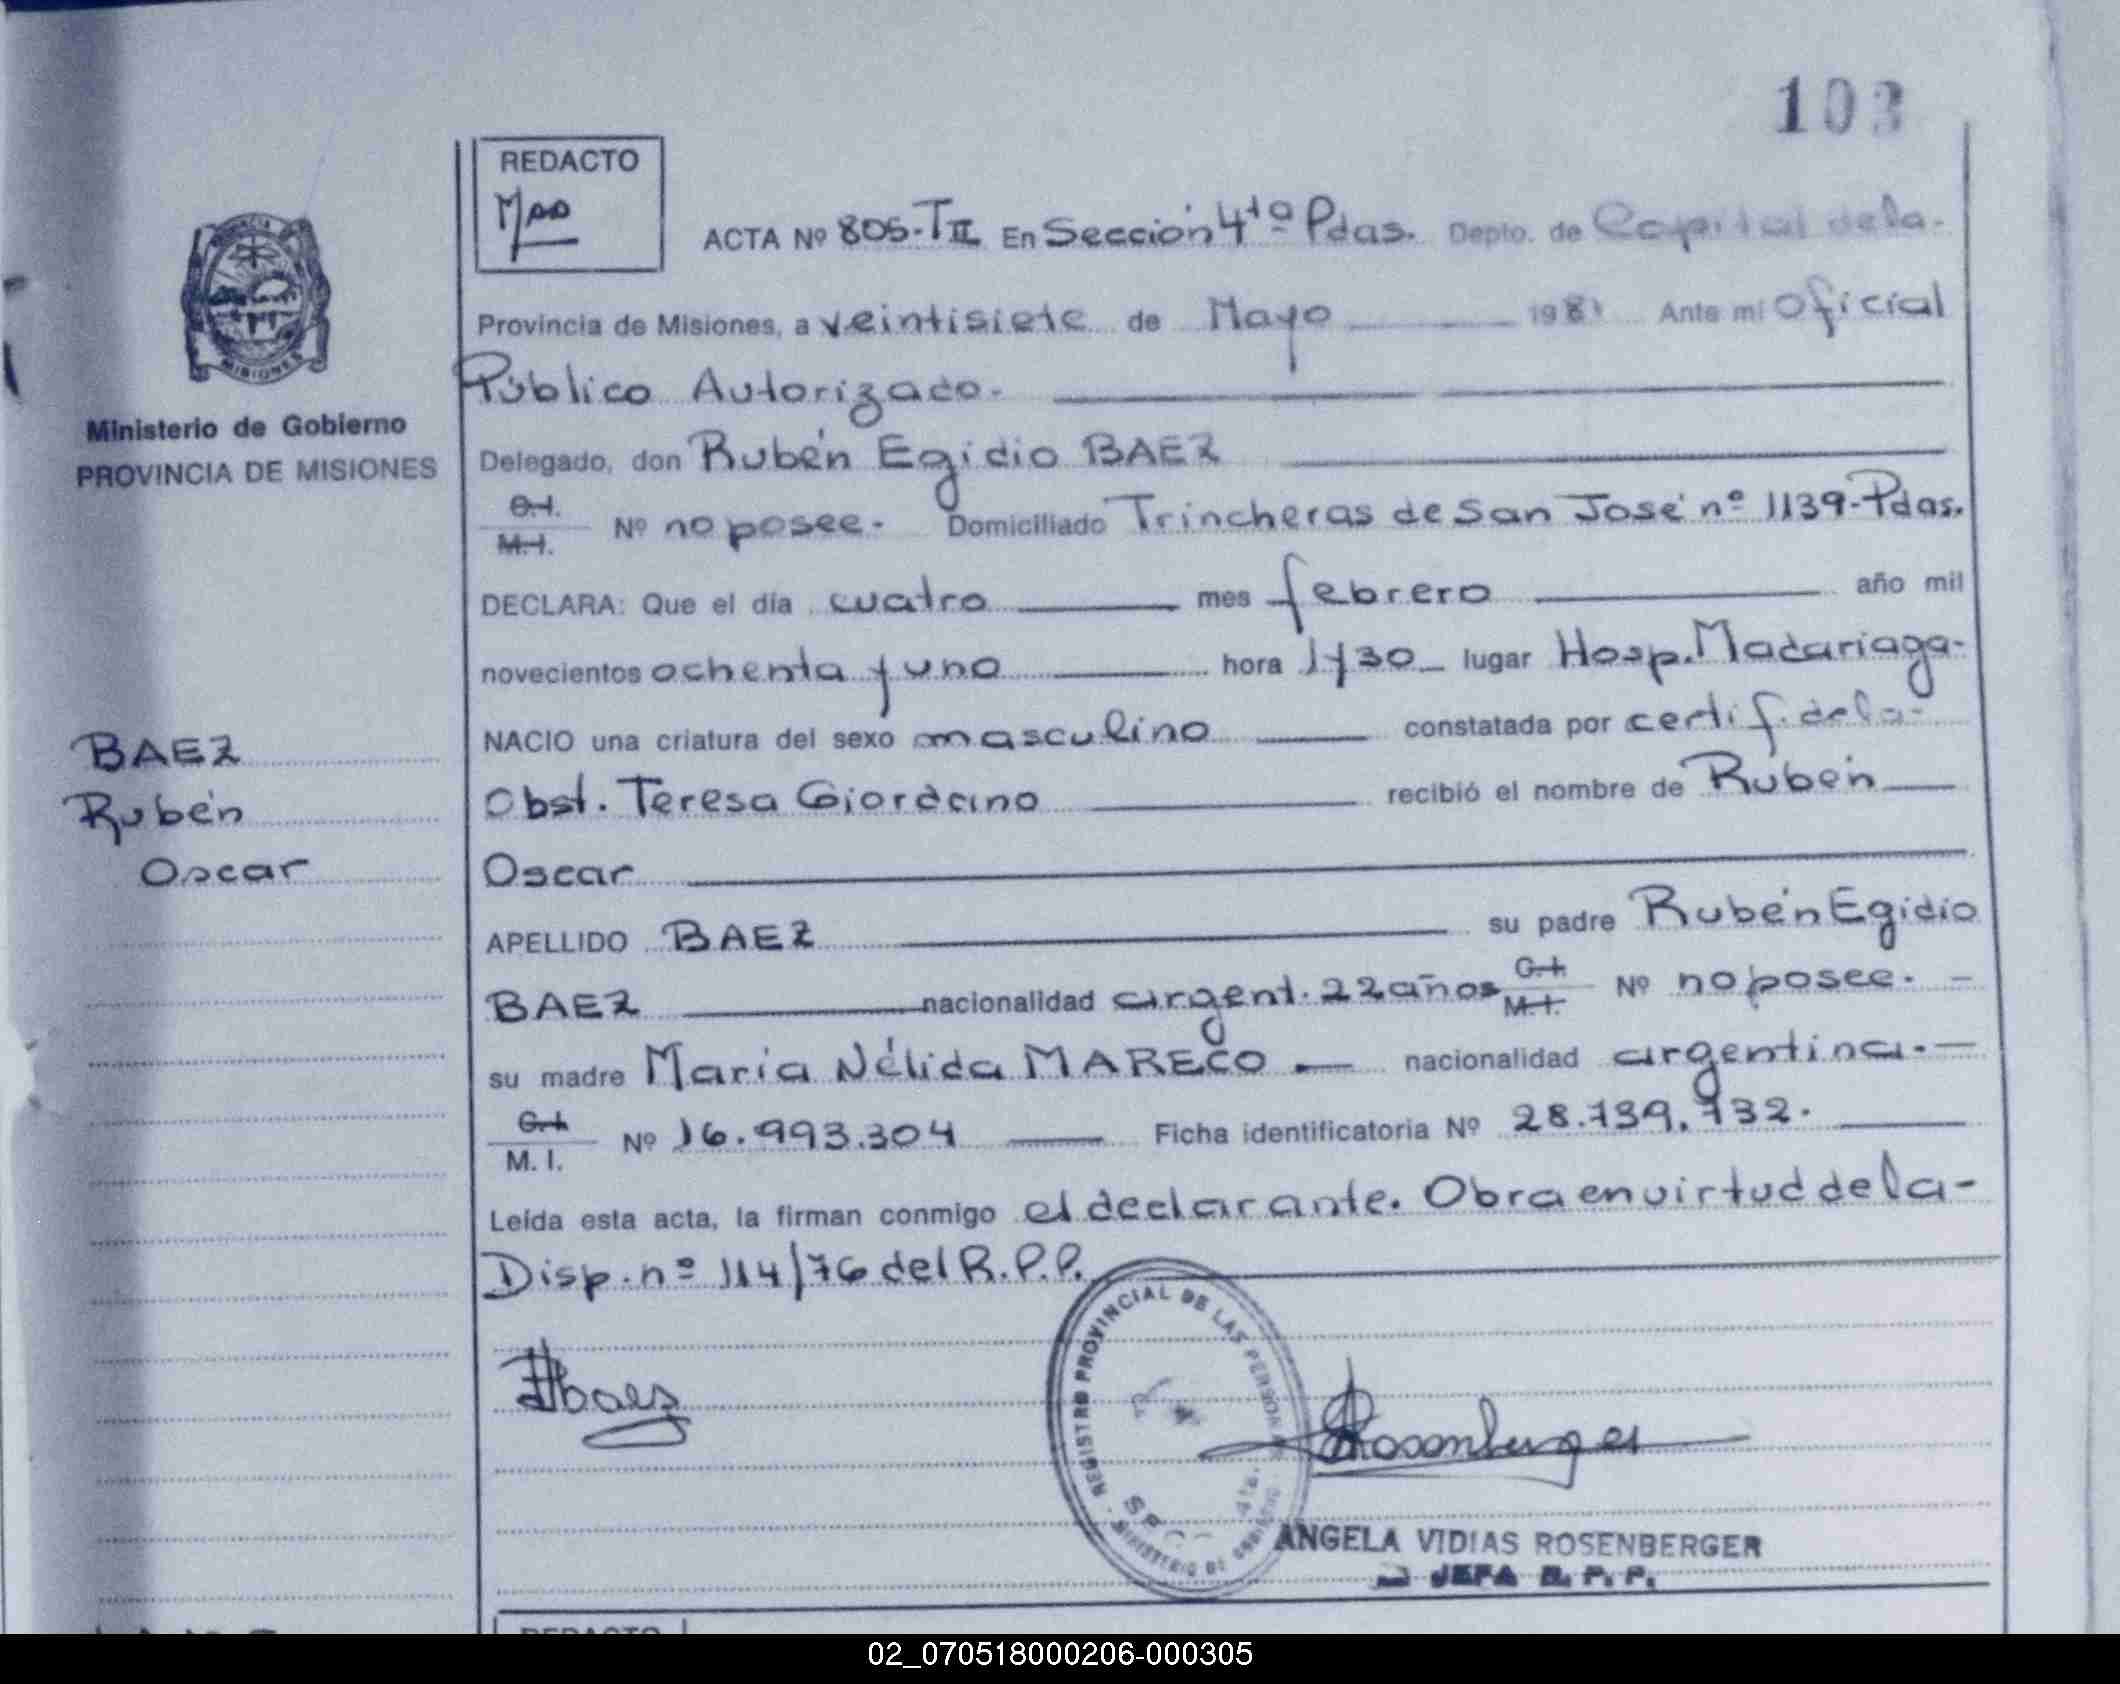 103
REDACTO
ACTA Nº 805-TII En Sección 4ta Pdas. Depto. de Capital de la-
Provincia de Misiones, a veintisiete de Mayo 1981 Ante mi Oficial
Público Autorizado.
Ministerio de Gobierno
PROVINCIA DE MISIONES
Delegado, don Rubén Egidio BAEZ
C.I.
M.I. Nº no posee. Domiciliado Trincheras de San José nº 1139-Pdas.
DECLARA: Que el día cuatro mes febrero año mil
novecientos ochenta y uno hora 1730 lugar Hosp. Madariaga-
NACIO una criatura del sexo masculino constatada por certif. de la-
BAEZ
Obst. Teresa Giordano recibió el nombre de Rubén
Rubén
Oscar
Oscar
APELLIDO BAEZ su padre Rubén Egidio
BAEZ nacionalidad argent. 22 años C.I.
M.I. Nº no posee. -
su madre María Nélida MARECO nacionalidad argentina. -
C.I.
M. I. Nº 16.993.304 Ficha identificatoria Nº 28.739.732.
Leída esta acta, la firman conmigo el declarante. Obra en virtud de la-
Disp. nº 114/76 del R.P.P.
REGISTRO PROVINCIAL DE LAS PERSONAS
MINISTERIO DE GOBIERNO
Baez
Rosenberger
ANGELA VIDIAS ROSENBERGER
JEFA R. P. P.
REDACTO
02_070518000206-000305